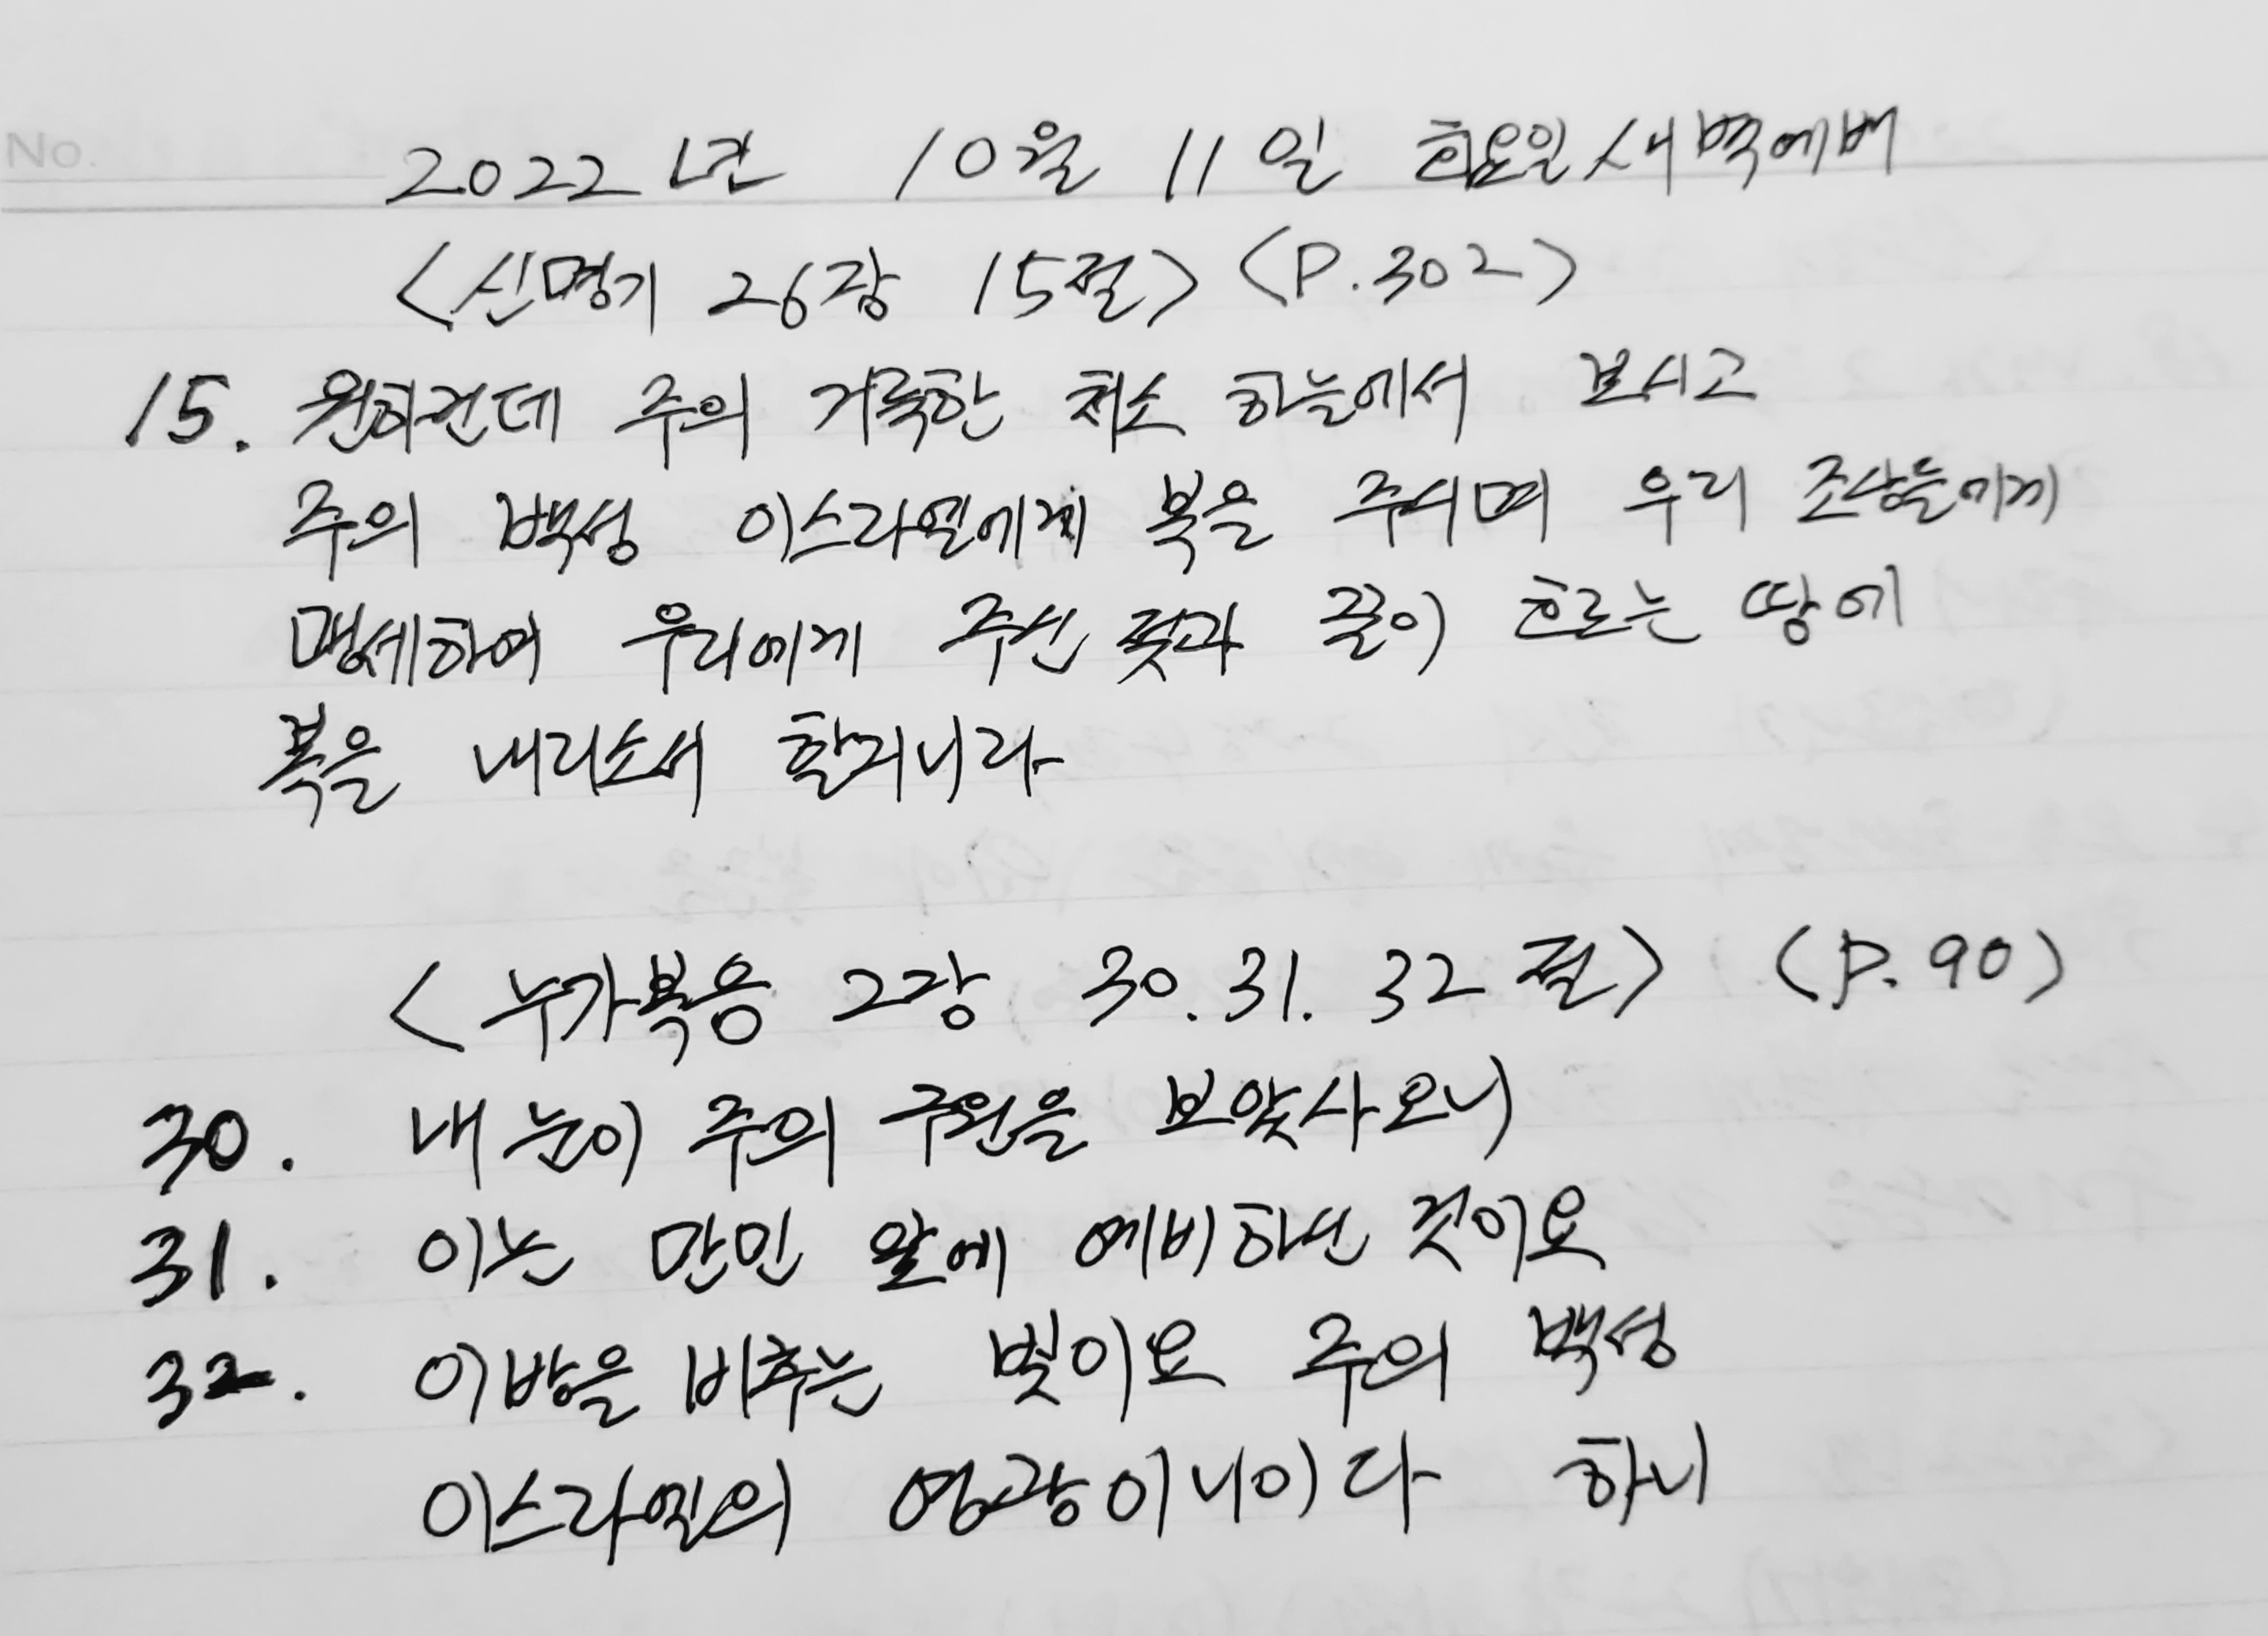 No.
2022년 10월 11일 화요일 새벽예배
<신명기 26장 15절> (P.302)
15. 원하건데 주의 거룩한 처소 하늘에서 보시고
주의 백성 이스라엘에게 복을 주시며 우리 조상들에게
맹세하여 우리에게 주신 젖과 꿀이 흐르는 땅에
복을 내리소서 할지니라
<누가복음 2장 30.31.32절> (P.90)
30. 내 눈이 주의 구원을 보았사오니
31. 이는 만민 앞에 예비하신 것이요
32. 이방을 비추는 빛이요 주의 백성
이스라엘의 영광이니이다 하니